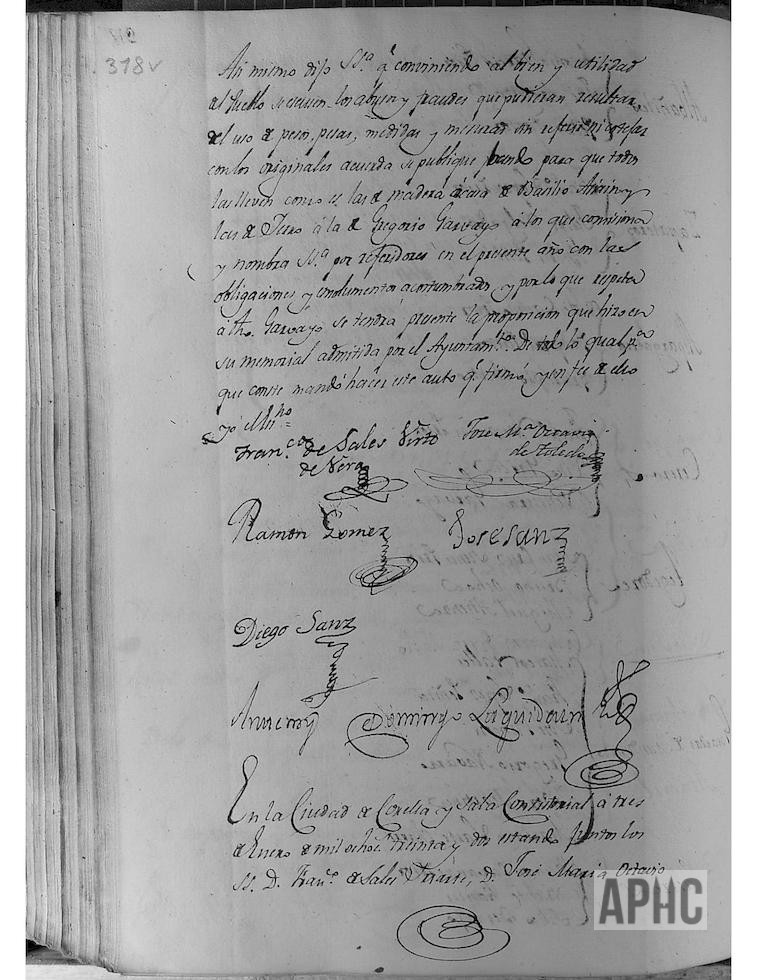 318v
Asi mismo dijo SSª. q.e conviniendo al bien y utilidad
del Pueblo se eviten los abusos y fraudes que pudieran resultar
del uso de pesos, pesas, medidas y mesuras sin referir ni cotejar
con los originales acuerda se publique bando para que todos
las lleven como es las de madera á casa de Basilio Arain y
las de Fierro á la de Gregorio Garvayo á los que comisiona
y nombra SSª. por referidores en el presente año con las
obligaciones y emolumentos acostumbrados, y por lo que respeta
á dho. Garvayo se tendrá presente la proposicion que hizo en
su memorial admitida por el Ayuntam.to De todo lo qual p.a
que conste mandó hacer este auto q.e firmó, y en fee de ello
yo el Ss.no =
Fran.co de Sales Virto
de Vera
Jose M.a Octavio
de Toledo
Ramon Gomez
Jose Sanz
Diego Sanz
Ante mi
Domingo Laquidain
En la Ciudad de Corella y Sala Consistorial á tres
de Enero de mil ochoc.s treinta y dos estando Juntos los
SS. D. Fran.co de Sales D. José María Octavio
APHC